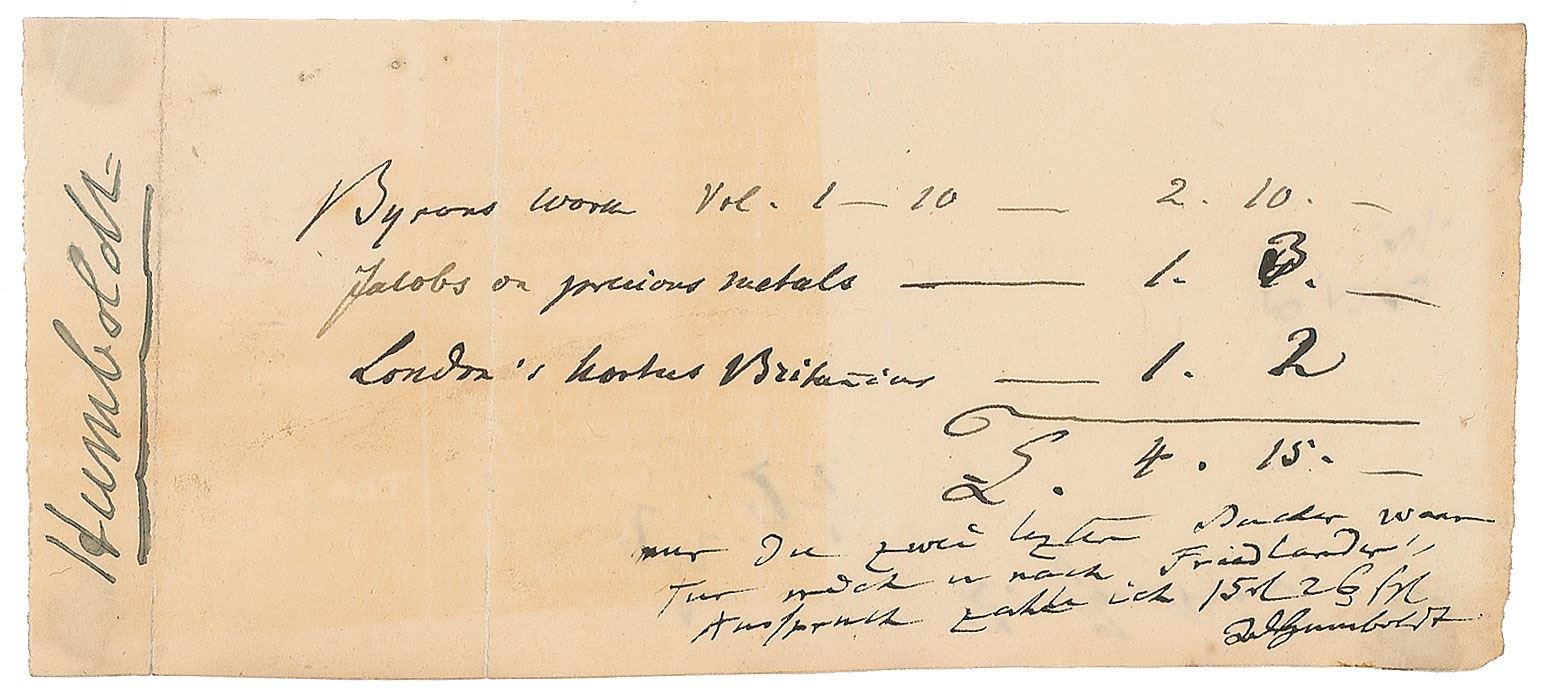 Humboldt
Byrons works Vol. 1 — 10 — 2. 10. —
Jacobs on precious metals — 1. 3. —
Loudon's hortus Britanicus — 1. 2
£. 4. 15. —
nur die zwei lezten Bücher waren
für mich u nach Friedländer's
Ausspruch zahle ich 15 26
AlHumboldt